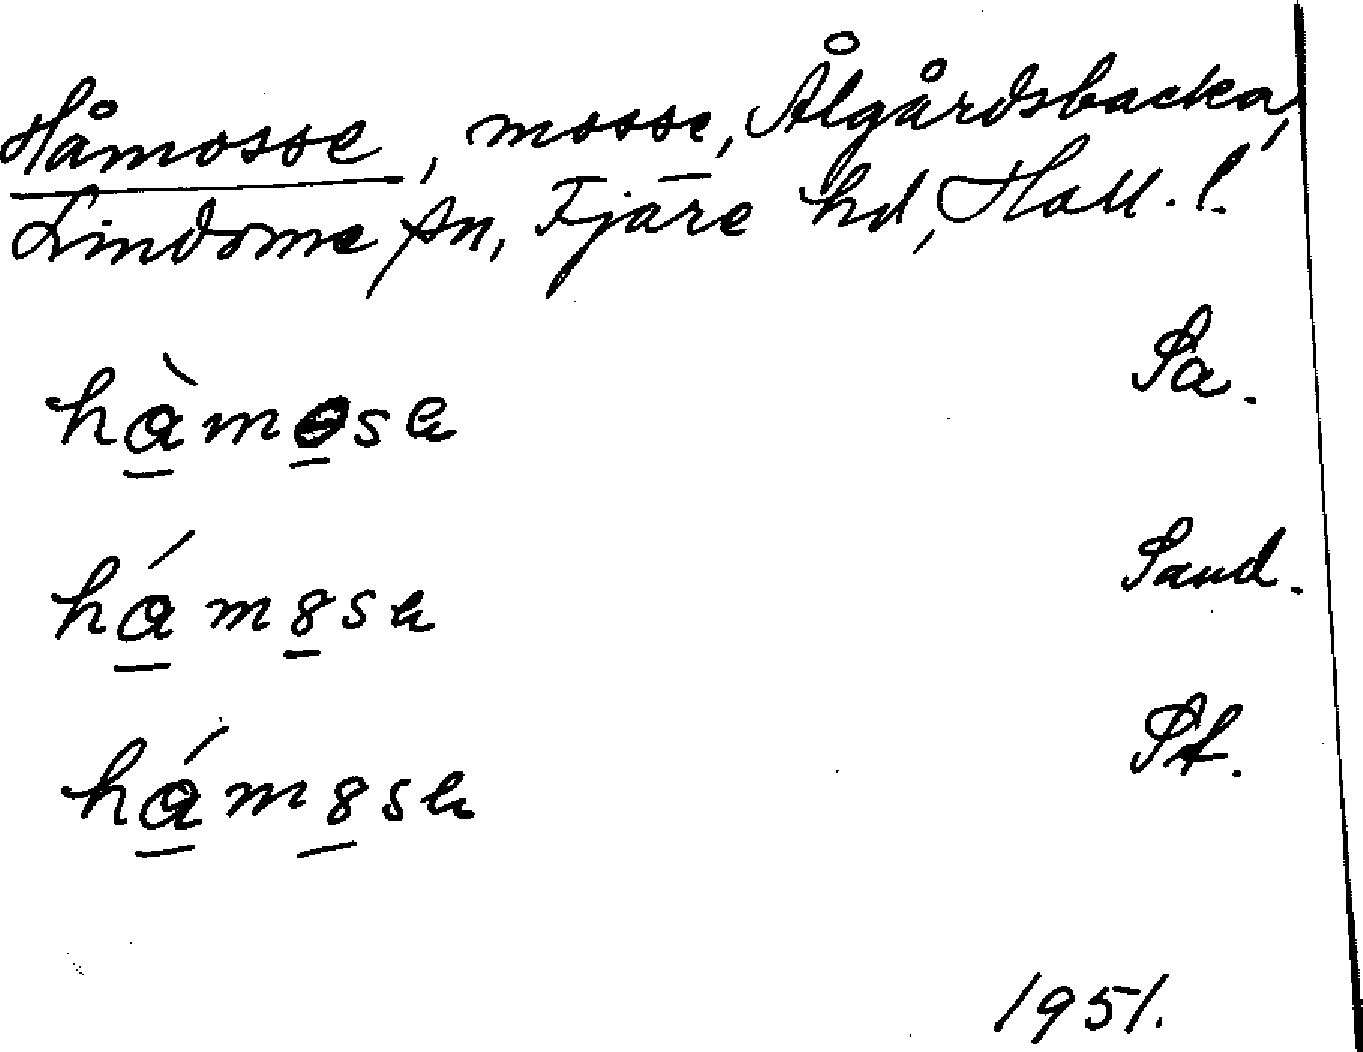 Håmosse, mosse, Ålgårdsbacka,
Lindome sn, Fjäre hd, Hall. l.
hàmose Sa.
hám8se Sand.
hám8se St.
1951.